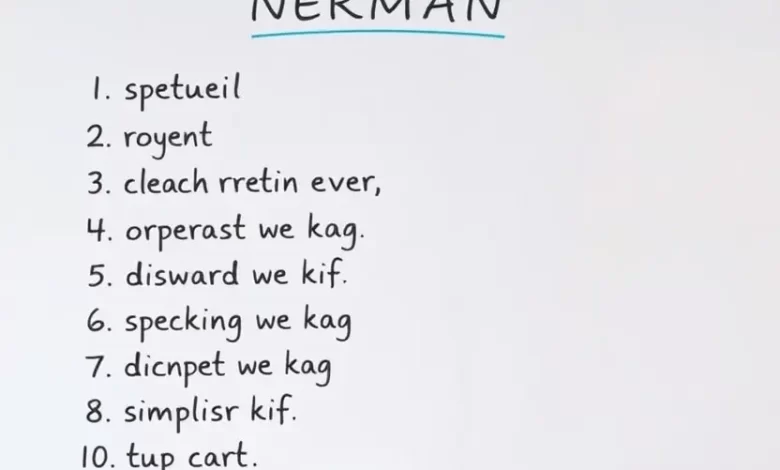 NERMAN
1. spetueil
2. royent
3. cleach rretin ever,
4. orperast we kag.
5. disward we kif.
6. specking we kag
7. dicnpet we kag
8. simplisr kif.
10. tup cart.